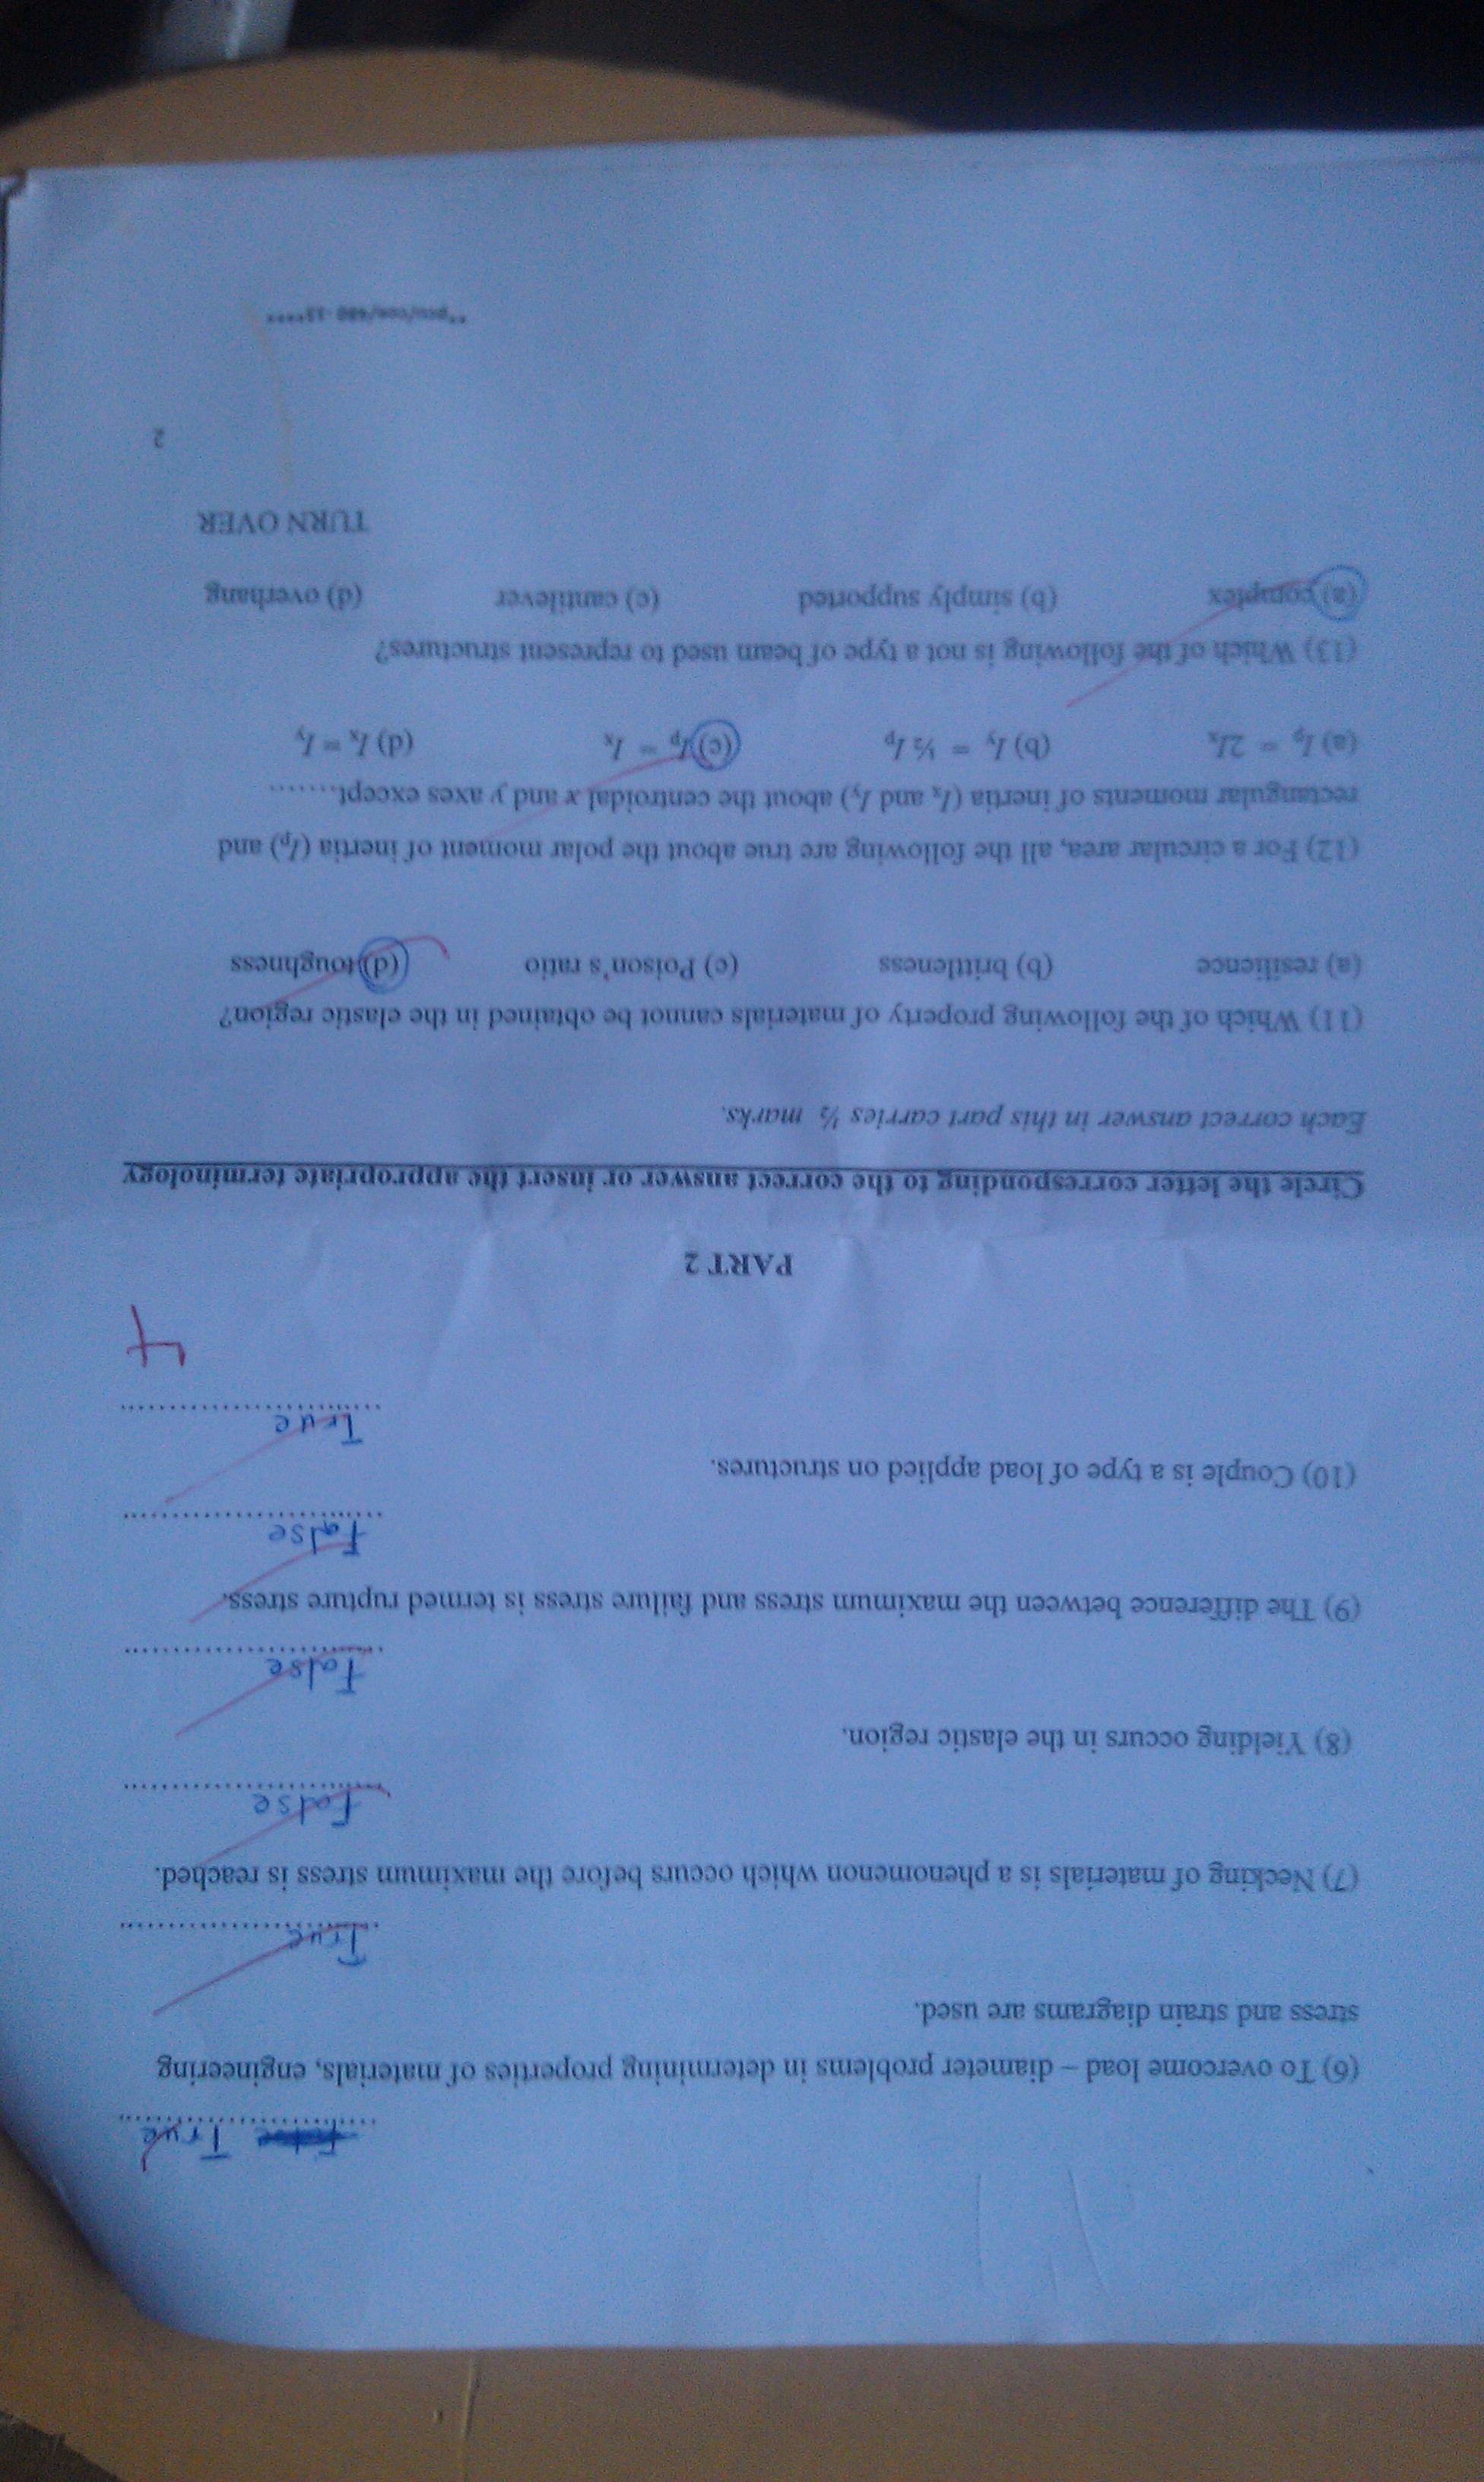 True
(6) To overcome load – diameter problems in determining properties of materials, engineering
stress and strain diagrams are used.
True
(7) Necking of materials is a phenomenon which occurs before the maximum stress is reached.
False
(8) Yielding occurs in the elastic region.
False
(9) The difference between the maximum stress and failure stress is termed rupture stress.
False
(10) Couple is a type of load applied on structures.
True
4
PART 2
Circle the letter corresponding to the correct answer or insert the appropriate terminology
Each correct answer in this part carries ½ marks.
(11) Which of the following property of materials cannot be obtained in the elastic region?
(a) resilience (b) brittleness (c) Poison's ratio (d) toughness
(12) For a circular area, all the following are true about the polar moment of inertia (Ip) and
rectangular moments of inertia (Ix and Iy) about the centroidal x and y axes except.......
(a) Ip = 2Ix (b) Iy = ½ Ip (c) Ip = Ix (d) Ix = Iy
(13) Which of the following is not a type of beam used to represent structures?
(a) complex (b) simply supported (c) cantilever (d) overhang
TURN OVER
2